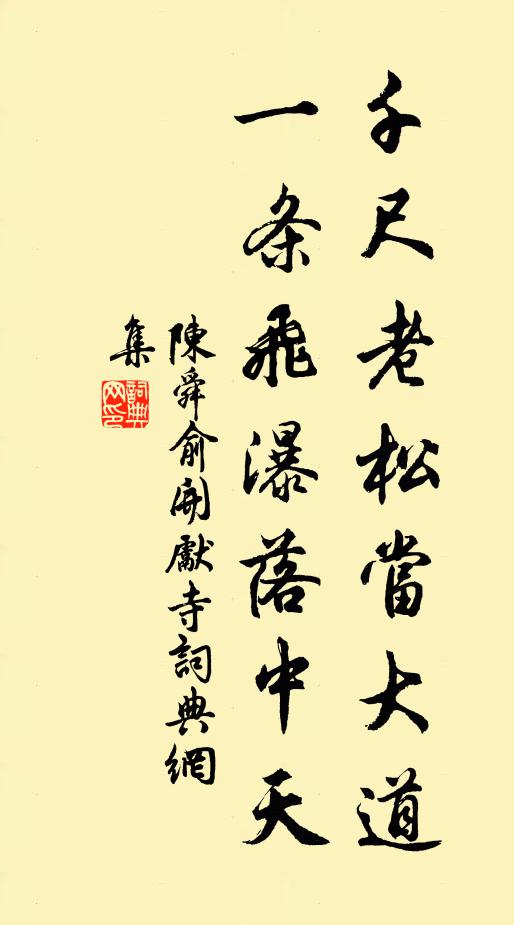 千尺老松當大道
一条飛瀑落中天
陳舜俞開獻寺詞典網
集
詞典
网印